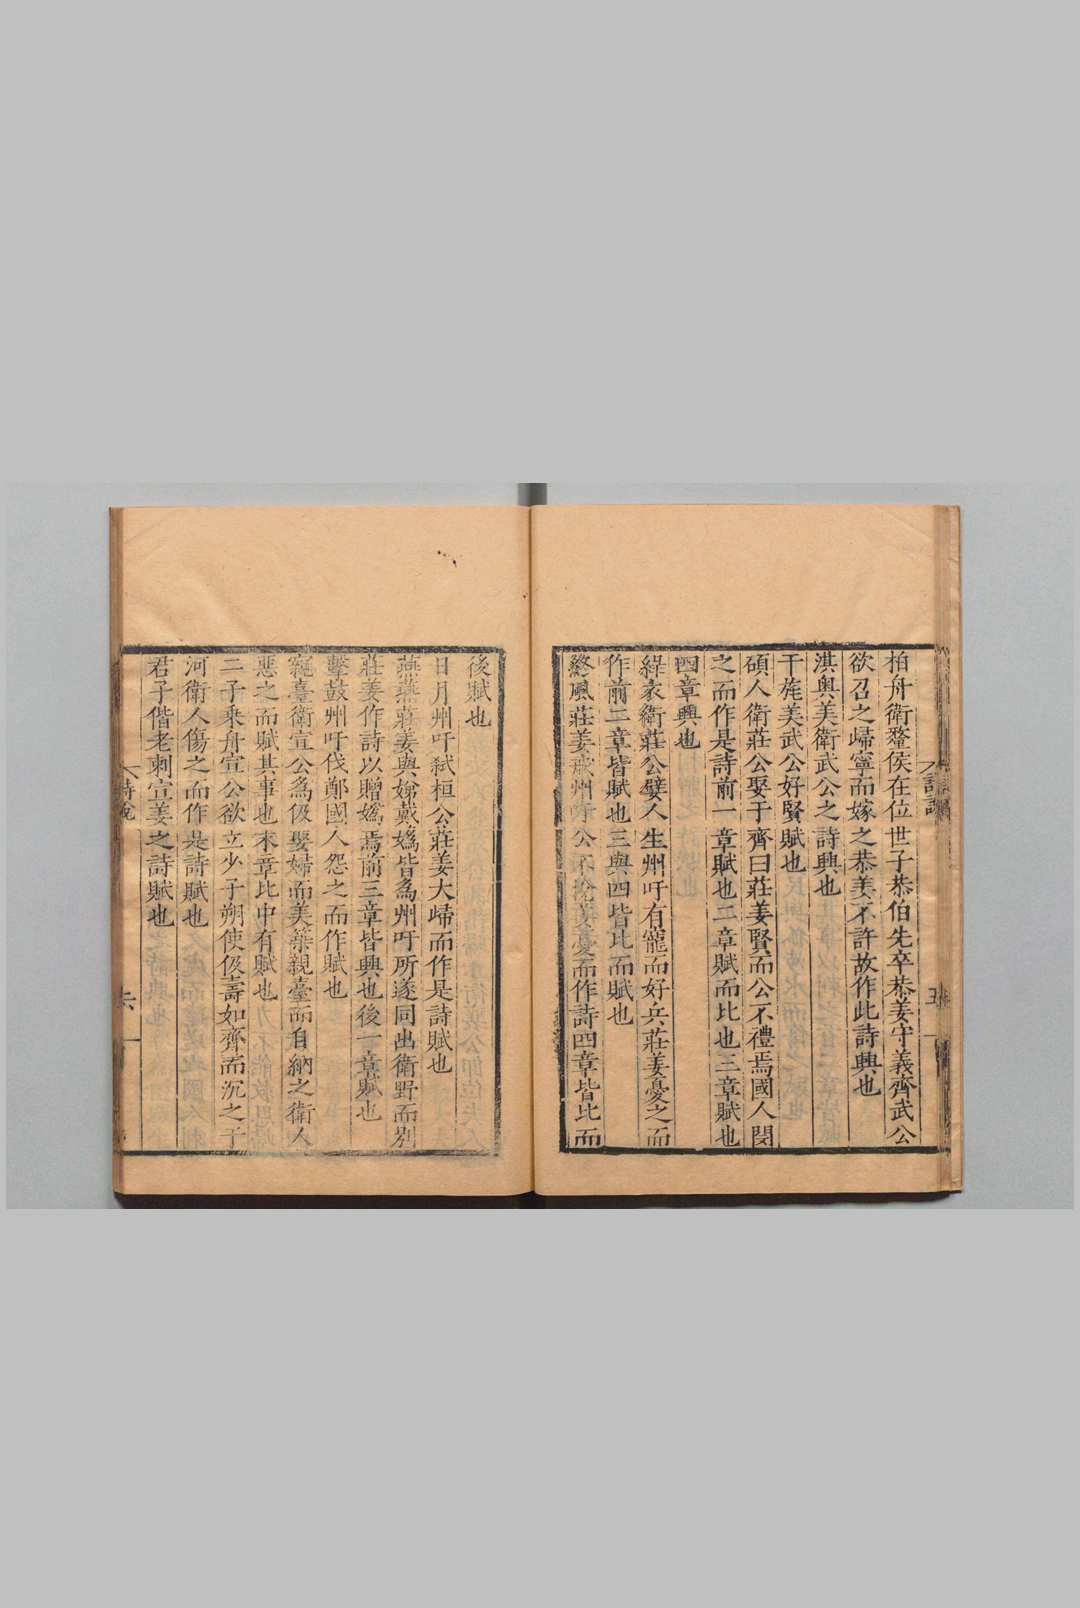 柏舟衛釐侯在位世子恭伯先卒恭姜守義齊武公
欲召之歸寧而嫁之恭姜不許故作此詩興也
淇奧美衛武公之詩興也
干旄美武公好賢賦也
碩人衛莊公娶于齊曰莊姜賢而公不禮焉國人閔
之而作是詩前一章賦也二章賦而比也三章賦也
四章興也
綠衣衛莊公嬖人生州吁有寵而好兵莊姜憂之而
作前二章皆賦也三與四皆比而賦也
終風莊姜戒州吁公不悅姜憂而作詩四章皆比而
後賦也
日月州吁弑桓公莊姜大歸而作是詩賦也
燕燕莊姜與娣戴媯皆為州吁所逐同出衛野而別
莊姜作詩以贈媯焉前三章皆興也後一章賦也
擊鼓州吁伐鄭國人怨之而作賦也
新臺衛宣公為伋娶婦而美築新臺而自納之衛人
惡之而賦其事也末章比中有賦也
二子乘舟宣公欲立少子朔使伋壽如齊而沉之于
河衛人傷之而作是詩賦也
君子偕老刺宣姜之詩賦也
詩說
六